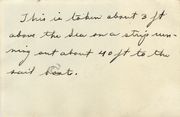 This is taken about 3 ft
above the Sea on a strip run-
ning out about 40 ft to the
said boat.